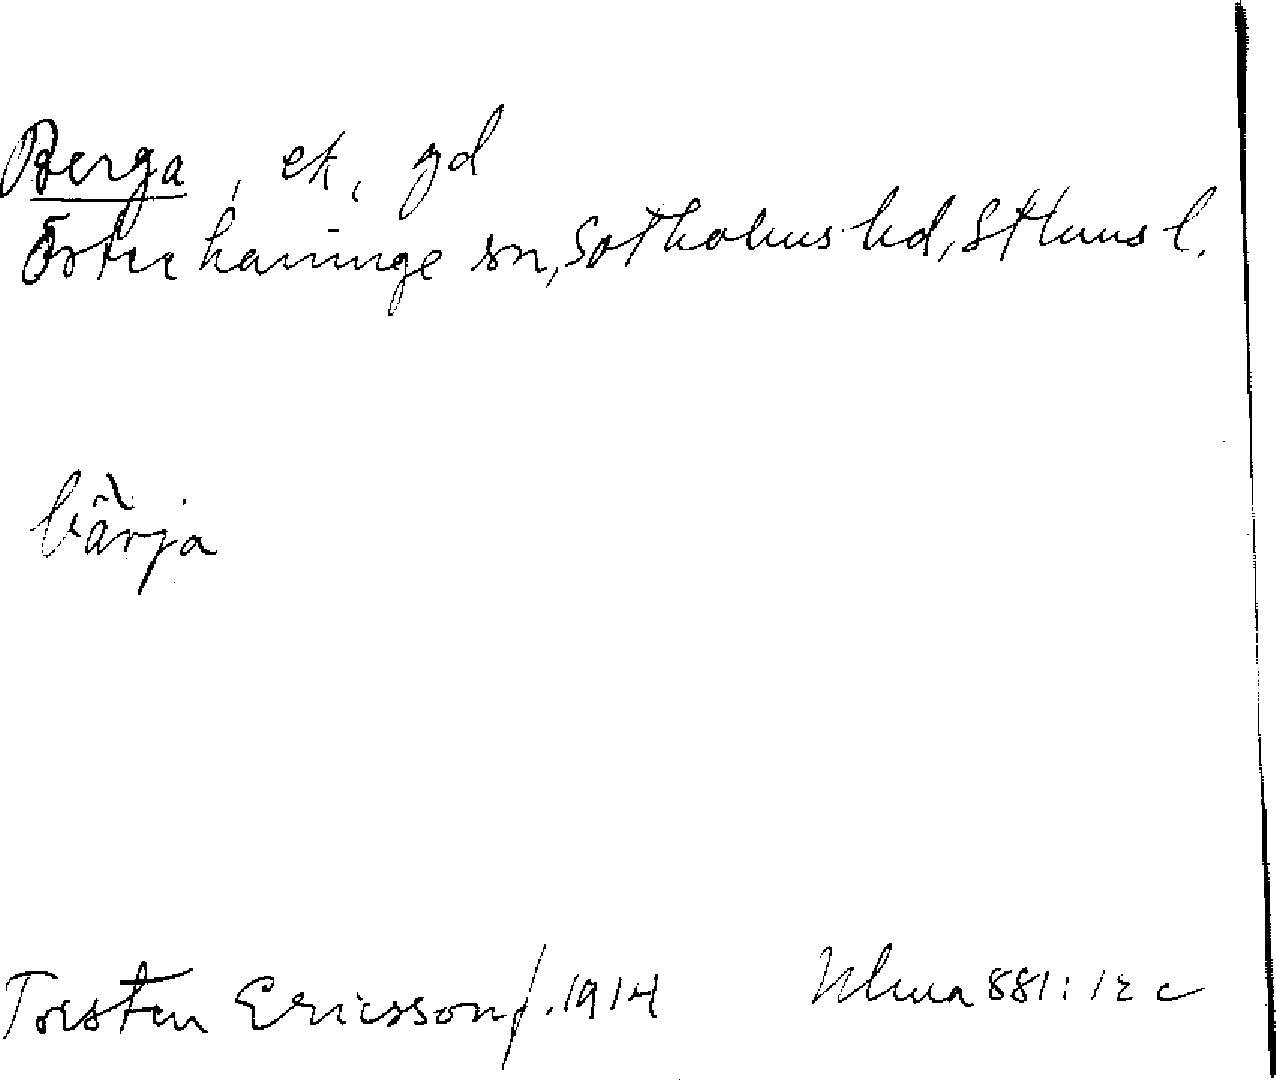 Berga, ek, gd
Österhaninge sn, Sotholms hd, Sthms l.
bà̈rja
Torsten Ericsson f. 1914 Ulma 881:12 c